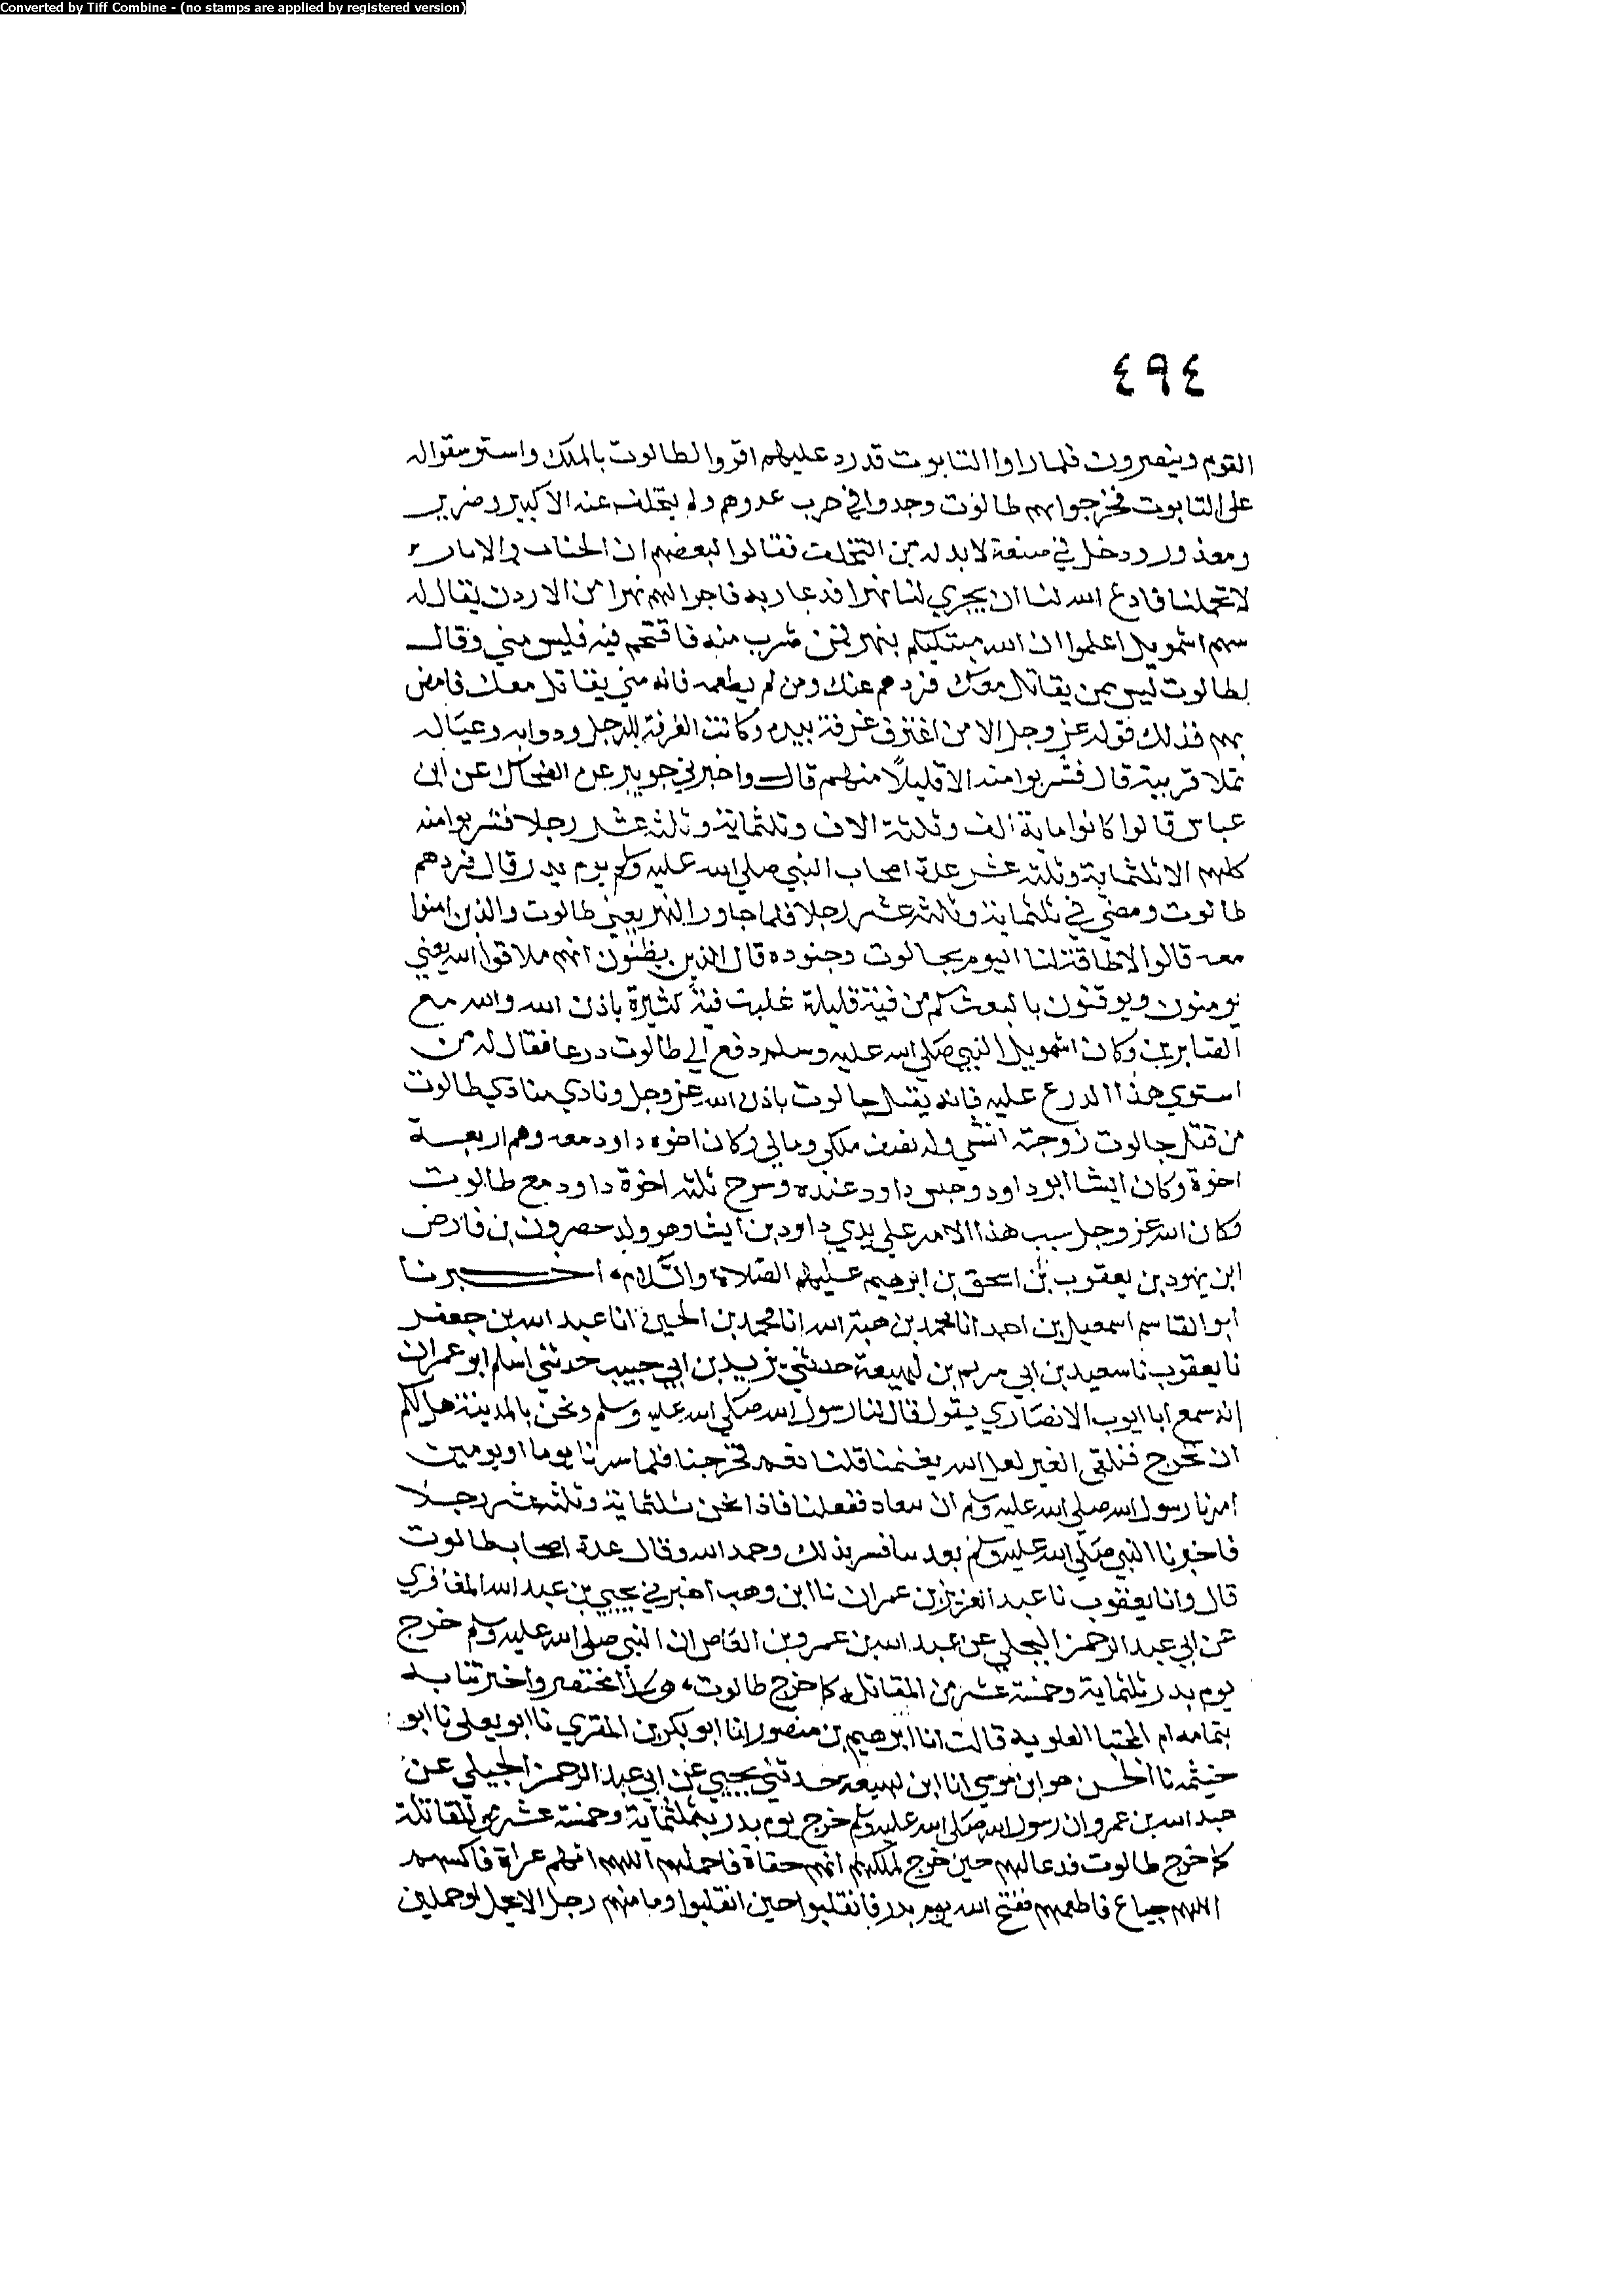 Converted by Tiff Combine - (no stamps are applied by registered version)
٤٩٤
القوم وينصرون فلما راوا التابوت قد رد عليهم اقروا لطالوت بالملك واستوسقواله
على التابوت فخرجوا بهم طالوت وجدوا في حرب عدوهم ولم يتخلف عنه الا كبير وضرير
ومعذور ورجل في صنعة لا بد له من التخلف فقالوا لبعضهم ان الجباب والابار
لا تحملنا فادع الله لنا ان يجري لنا نهرا فدعا ربه فاجرا لهم نهرا من الاردن يقال له
سهم اشمويل اعلموا ان الله مبتليكم بنهر فمن شرب منه فاقتحم فيه فليس مني وقال
لطالوت ليس ممن يقاتل معك فردهم عنك ومن لم يطعمه فانه مني يقاتل معك فامض
بهم فذلك قوله عز وجل الا من اغترف غرفة بيده وكانت الغرفة للرجل ودوابه وعياله
تملا قربته قال فشربوا منه الا قليلا منهم قال واخبرني جويبر عن الضحاك عن ابن
عباس قالوا كانوا ماية الف وثلثة الاف وثلثماية وثلثه عشر رجلا فشربوا منه
كلهم الا ثلثماية وثلثه عشر عدة اصحاب النبي صلى الله عليه وسلم يوم بدر قال فردهم
طالوت ومضى في ثلثماية وثلثه عشر رجلا فلما جاوز النهر يعني طالوت والذين امنوا
معه قالوا لا طاقة لنا اليوم بجالوت وجنوده قال الذين يظنون انهم ملاقوا الله يعني
يومنون ويوقنون بالبعث كم من فية قليلة غلبت فية كثيرة باذن الله والله مع
الصابرين وكان اشمويل النبي صلى الله عليه وسلم دفع الي طالوت درعا فقال له من
استوي هذا الدرع عليه فانه يقتل جالوت باذن الله عز وجل ونادي منادي طالوت
من قتل جالوت زوجته ابنتي وله نصف ملكي ومالي وكان اخوه داود معه وهم اربعة
اخوة وكان ايشا ابو داود وحبس داود عنده وسرح ثلثه اخوة داود مع طالوت
وكان الله عز وجل سبب هذا الامر علي يدي داود بن ايشا وهو ولد حصرون بن فارض
ابن يهود بن يعقوب بن اسحق بن ابرهيم عليهم الصلاة والسلام، اخبرنا
ابو القاسم اسمعيل بن احمد انا محمد بن هبة الله انا محمد بن الحسين انا عبد الله بن جعفر
نا يعقوب نا سعيد بن ابي مريم بن لهيعة حدثني يزيد بن ابي حبيب حدثني اسلم ابو عمران
انه سمع ابا ايوب الانصاري يقول قال لنا رسول الله صلى الله عليه وسلم ونحن بالمدينة هل لكم
ان نخرج فنلقى العير لعل الله يغنمنا قلنا نعم فخرجنا فلما سرنا يوما او يومين
امرنا رسول الله صلى الله عليه وسلم ان نتعاد ففعلنا فاذا نحن ثلثماية وثلثه عشر رجلا
فاخبرنا النبي صلى الله عليه وسلم بعدتنا فسر بذلك وحمد الله وقال عدة اصحاب طالوت
قال وانا يعقوب نا عبد العزيز بن عمران نا ابن وهب اخبرني يحيي بن عبد الله المغافري
عن ابي عبد الرحمن البجلي عن عبد الله بن عمرو بن العاص ان النبي صلى الله عليه وسلم خرج
يوم بدر ثلثماية وخمسة عشر من المقاتلة كما خرج طالوت، هكذا مختصر واخبرتنا به
بتمامه ام المجتبا العلوية قالت انا ابرهيم بن منصور انا ابو بكر بن المقري نا ابو يعلى نا ابو
خيثمه نا الحسن هو ابن موسي انا ابن لهيعة حدثني يحيي عن ابي عبد الرحمن الجيلي عن
عبد الله بن عمرو ان رسول الله صلى الله عليه وسلم خرج يوم بدر بثلثماية وخمسة عشر من المقاتلة
كما خرج طالوت فدعا لهم حين خرج اللهم انهم حفاة فاحملهم اللهم انهم عراة فاكسهم
اللهم جياع فاطعمهم ففتح الله يوم بدر فانقلبوا حين انقلبوا وما منهم رجل الا بجمل او جملين